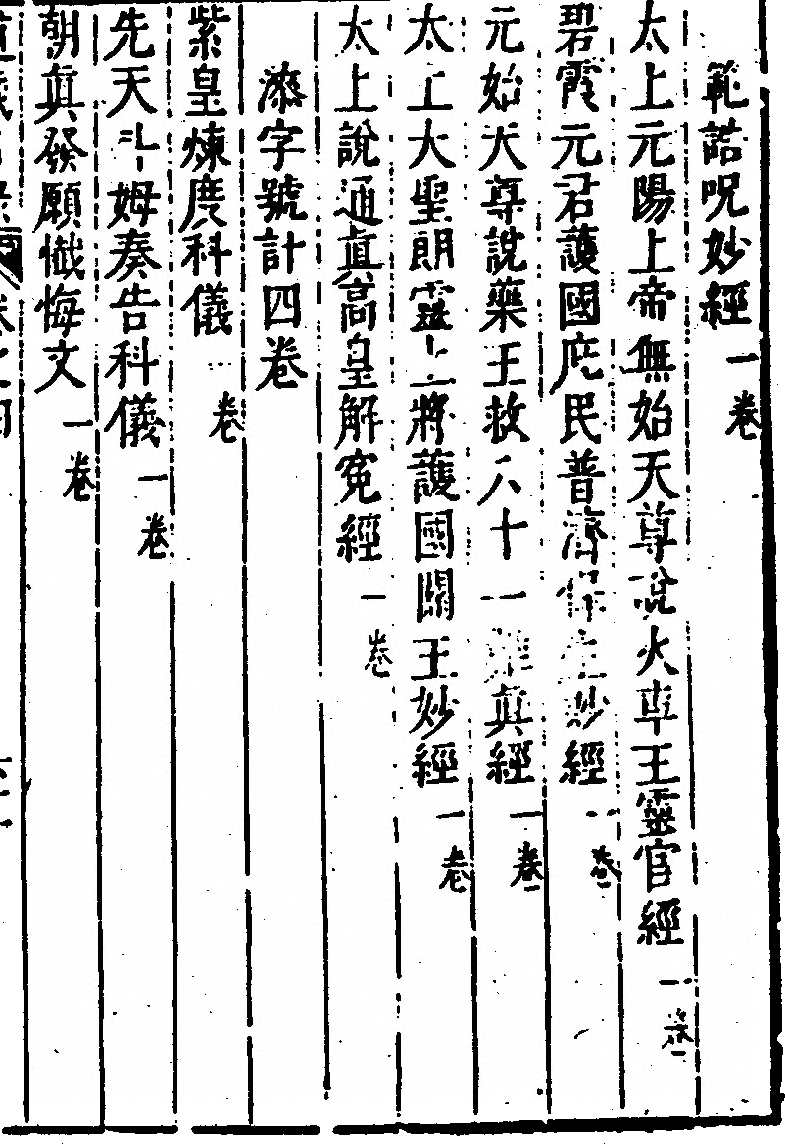 範誥呪妙經一卷
太上元陽上帝無始天尊說火車王靈官經一卷
碧霞元君護國庇民普濟保生妙經一卷
元始天尊說藥王救八十一難真經一卷
太上大聖朗靈上將護國關王妙經一卷
太上說通真高皇解冤經一卷
漆字號計四卷
紫皇煉度科儀一卷
先天斗姆奏告科儀一卷
朝真發願懺悔文一卷